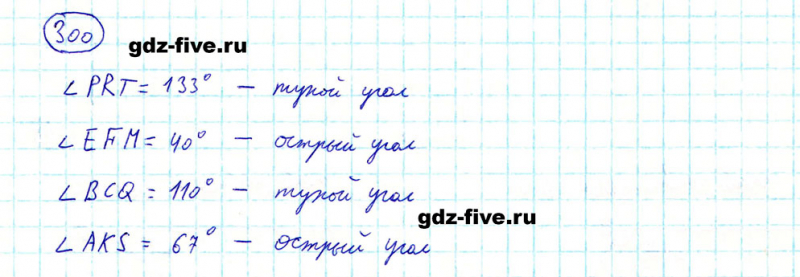 300
gdz-five.ru
∠PRT = 133° – тупой угол
∠EFM = 40° – острый угол
∠BCQ = 110° – тупой угол
gdz-five.ru
∠AKS = 67° – острый угол